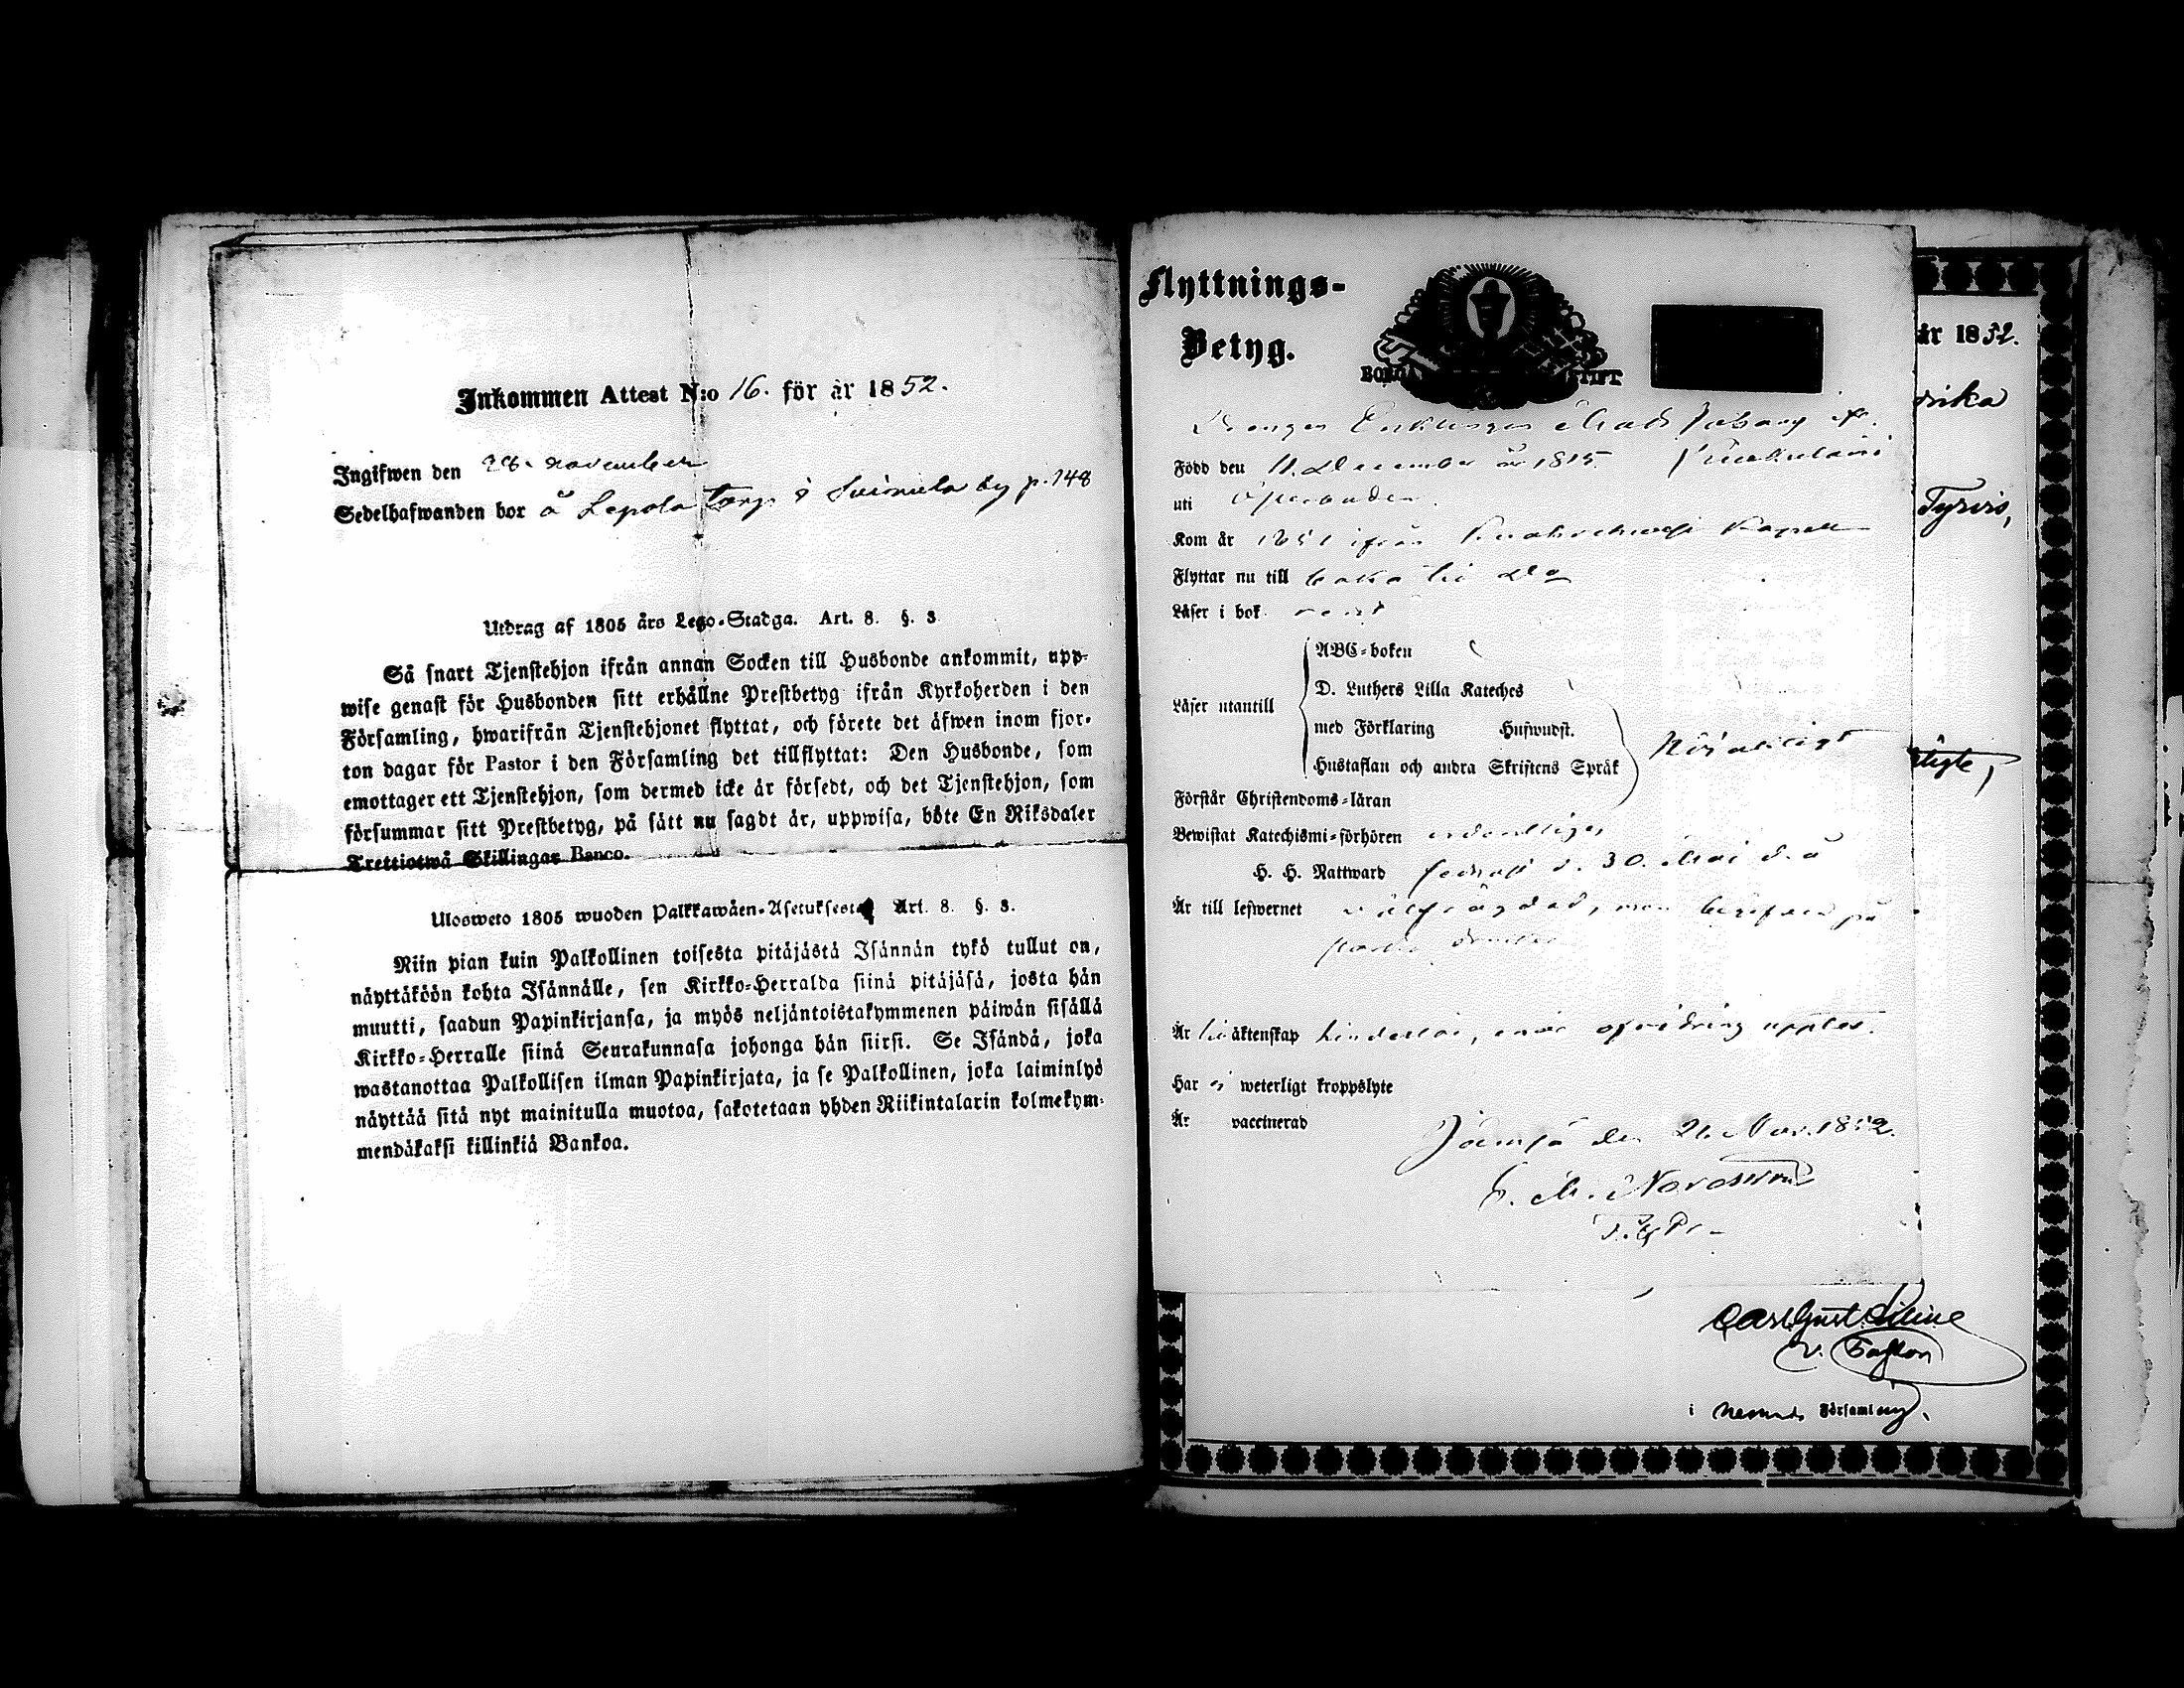 Inkommen Attest N:o 16. för år 1852.
Ingifwen den 28. november
Sedelhafwanden bor å Lepola torp i by p. 148
Utdrag af 1805 års Lego-Stadga. Art. 8. §. 3
Så snart Tjenstehjon ifrån annan Socken till Husbonde ankommit, upp-
wise genast för Husbonden sitt erhållne Prestbetyg ifrån Kyrkoherden i den
Församling, hwarifrån Tjenstehjonet flyttat, och förete det äfwen inom fjor-
ton dagar för Pastor i den Församling det tillflyttat: Den Husbonde, som
emottager ett Tjenstehjon, som dermed icke är försedt, och det Tjenstehjon, som
försummar sitt Prestbetyg, på sätt nu sagdt är, uppwisa, böte En Riksdaler
Trettiotwå Skillingar Banco.
Ulosweto 1805 wuoden Palkkawäen-Asetuksesta Art. 8. §. 3.
Niin pian kuin Palkollinen toisesta pitäjästä Isännän tykö tullut on,
näyttäköön kohta Isännälle, sen Kirkko-Herralda siinä pitäjäsä, josta hän
muutti, saadun Papinkirjansa, ja myös neljäntoistakymmenen päiwän sisällä
Kirkko-Herralle siinä Seurakunnasa johonga hän siirsi. Se Isändä, joka
wastanottaa Palkollisen ilman Papinkirjata, ja se Palkollinen, joka laiminlyö
näyttää sitä nyt mainitulla muotoa, sakotetaan yhden Riikintalarin kolmekym-
mendäkaksi killinkiä Bankoa.
Flyttnings-
Betyg.
BORGÅ STIFT
Drengen
Född den 11. December år 1815.
uti
Kom år 1851 ifrån Kapell
Flyttar nu till
Läser i bok rent
ABC-boken
D. Luthers Lilla Kateches
Läser utantill
med Förklaring Hufwudst.
Hustaflan och andra Skriftens Språk
Nöjaktigt
Förstår Christendoms-läran
Bewistat Katechismi-förhören ordentligen
H. H. Nattward sednast d. 30. Maj d. å
Är till lefwernet men på
Är till äktenskap hinderlös,
Har ej weterligt kroppslyte
Är vaccinerad
Jämsä den 21. Nov. 1852.
år 1852.
Tyrvis,
v. Pastor
i Församling.